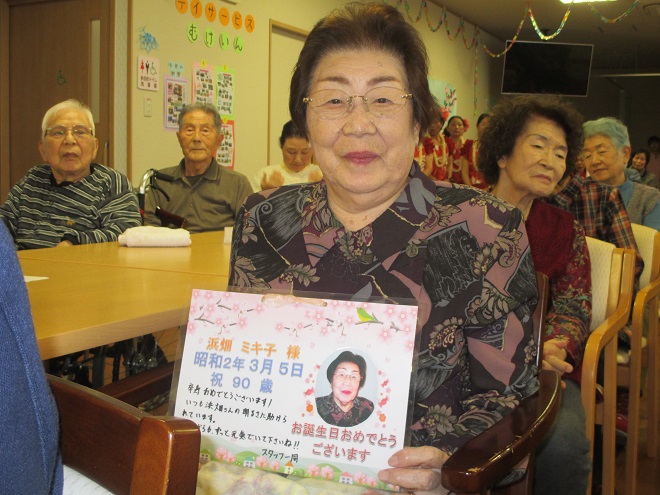 デイサービス
むけいえん
浜畑 ミキ子 様
昭和2年 3月 5日
祝 90 歳
卒寿おめでとうございます!
いつも浜畑さんの明るさに助けら
れています。
ずっと元気でいて下さいね!!
スタッフ一同
お誕生日おめでとう
ございます